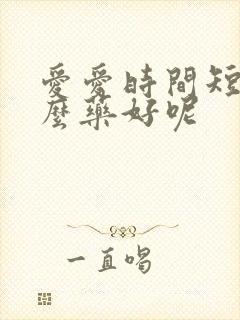 愛愛時間短
麼藥好呢
一直唱